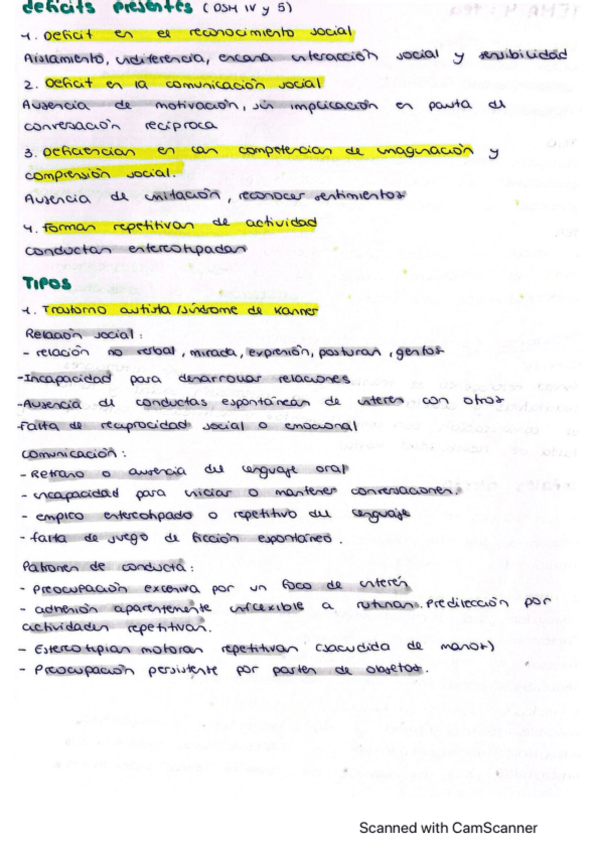 déficits presentes (DSM IV y 5)
1. Deficit en el reconocimiento social
Aislamiento, indiferencia, escasa interacción social y sensibilidad
2. Deficit en la comunicación social
Ausencia de motivación, sin implicación en pauta de
conversación recíproca
3. Deficiencias en las competencias de imaginación y
comprensión social.
Ausencia de imitación, reconocer sentimientos
4. Formas repetitivas de actividad
conductas estereotipadas
TIPOS
1. Trastorno autista/síndrome de Kanner
Relación social:
- relación no verbal, mirada, expresión, posturas, gestos
-Incapacidad para desarrollar relaciones
-Ausencia de conductas espontáneas de interés con otros
-Falta de reciprocidad social o emocional
Comunicación:
- Retraso o ausencia del lenguaje oral
- incapacidad para iniciar o mantener conversaciones.
- empleo estereotipado o repetitivo del lenguaje
- falta de juego de ficción espontáneo.
Patrones de conducta:
- Preocupación excesiva por un foco de interés
- adhesión aparentemente inflexible a rutinas. Predilección por
actividades repetitivas.
- Estereotipias motoras repetitivas (sacudida de manos)
- Preocupación persistente por partes de objetos.
Scanned with CamScanner